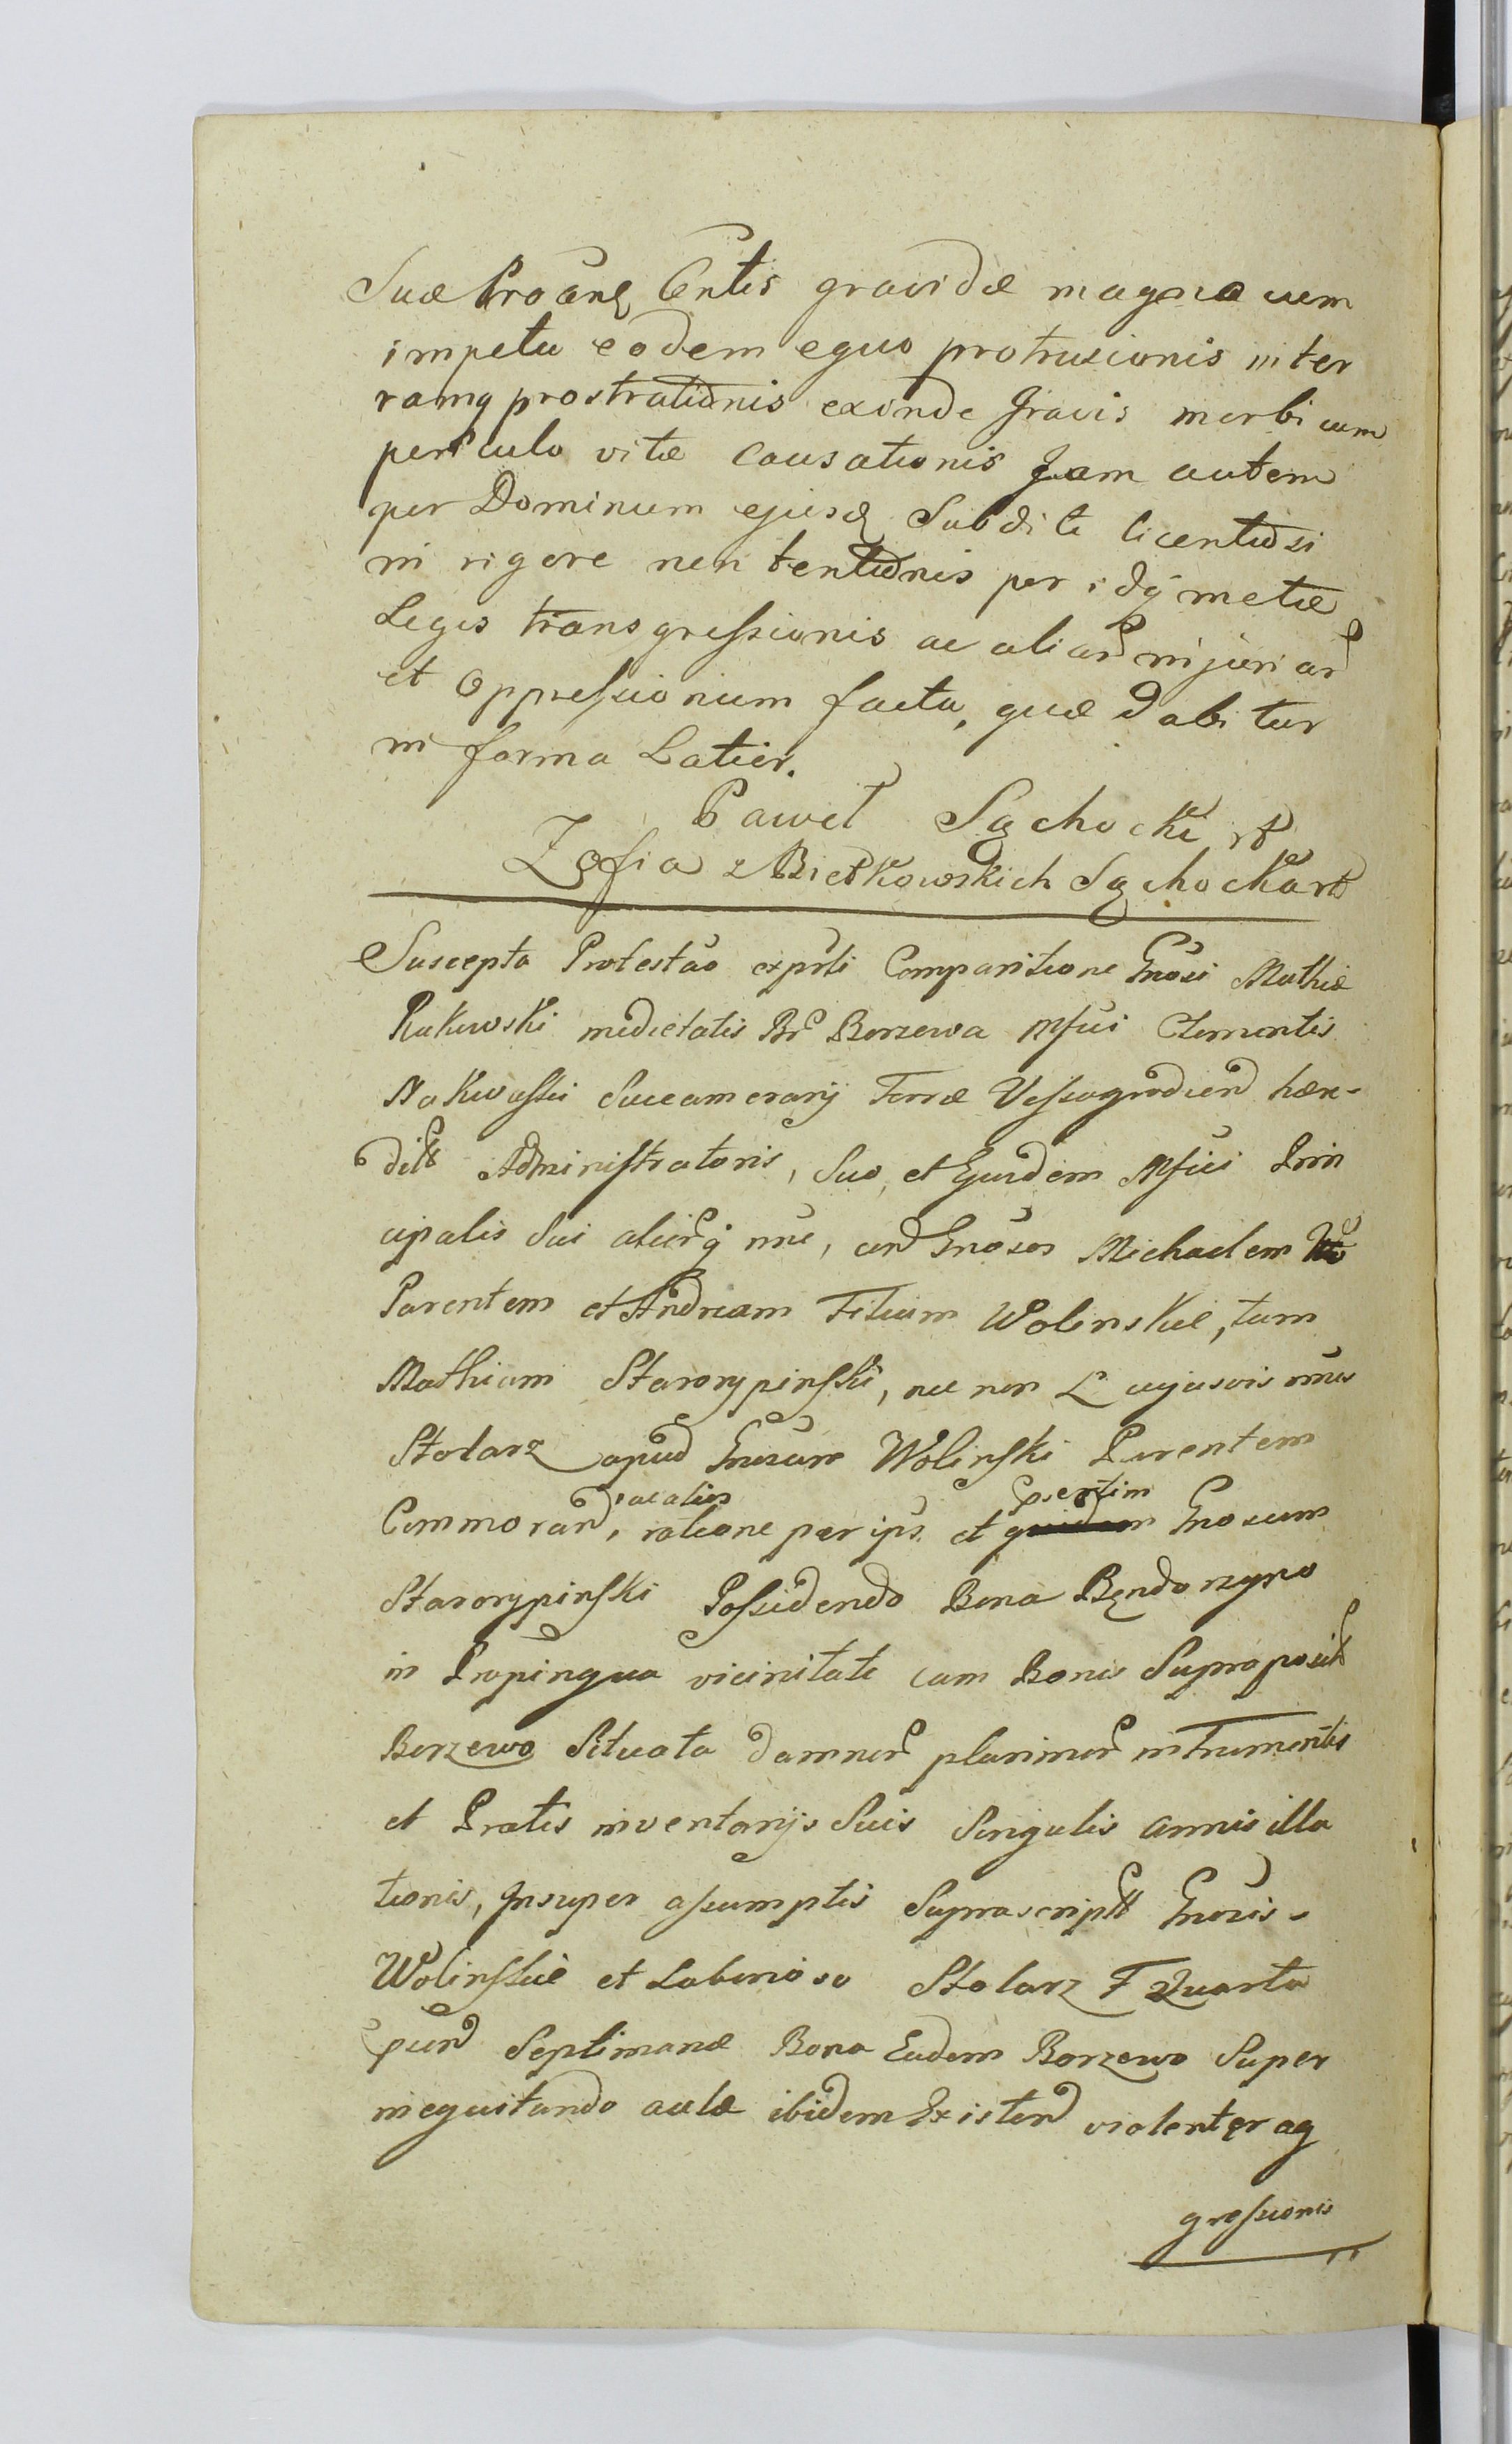 Suæ Proãnq Entis gravidæ magno cum
impetu eodem equo protrusionis inter
ramq prostrationis exinde gravis morbi cum
periculo vitæ causationis Jam autem
per Dominum ejusq Subditi licentiosi
in rigore non tentionis per idq metæ
Legis transgressionis ac aliar injuriar
et oppressionum facta, quæ dabitur
in forma Latior.
Paweł Sąchocki
Zofia z Bietkowskich Sąchocka
Suscepta Protestão Comparitione Gnõsi Mathiæ
Rukowski medietatis Br Borzewa Mfici Clementis
Nakwaski Succamerarij Terræ Vissogrodien hære-
dit Administratoris, Suo, et Ejusdem Mfici Prin
cipalis Sui alior nne, con Gnõsos Michaelem
Parentem et Andream Filium Wolinskie, tum
Mathiam Starorypinski, nec non L cujusvis nnis
Stolarz apud Gnosum Wolinski Parentem
Commoran, ac alior ratione per ips et psertim Gnosum
Starorypinski Possidendo Bona Bendorzyno
in Propinqua vicinitate cum Bonis Supraposit
Borzewo Situata damnor plurimor in Frumentis
et Pratis inventarijs Suis Singulis annis illa
tionis, Insuper assumptis Suprascript Gnosis
Wolinskie et Laborioso Stolarz F Quarta
psen Septimanæ Bona Eadem Borzewo Super
inequitando aulæ ibidem Existen violenter ag
gressionis